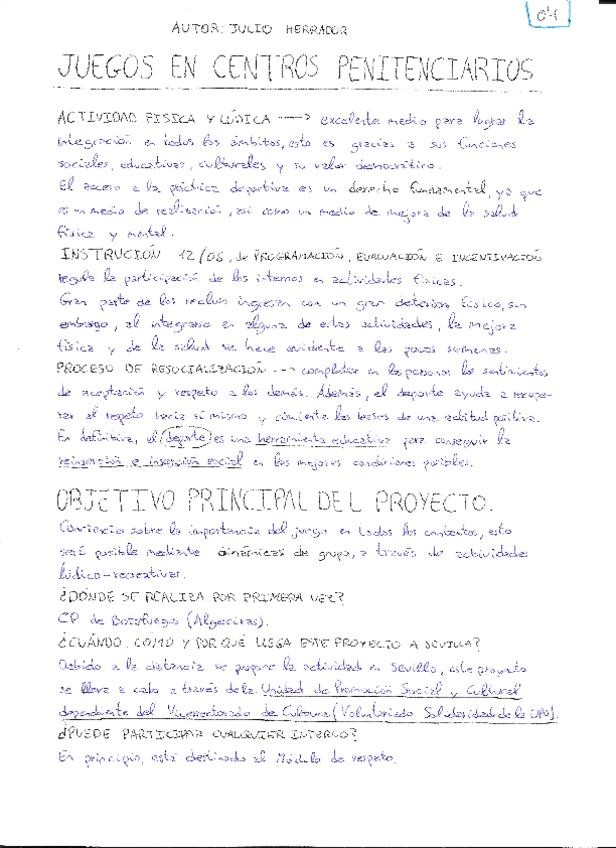 0'4
AUTOR: JULIO HERRADOR
JUEGOS EN CENTROS PENITENCIARIOS
ACTIVIDAD FISICA Y LÚDICA ---> excelente medio para lograr la
integración en todos los ámbitos, esto es gracias a sus funciones
sociales, educativas, culturales y su valor democrático.
El acceso a la práctica deportiva es un derecho fundamental, ya que
es un medio de realización, así como un medio de mejora de la salud
física y mental.
INSTRUCIÓN 12/06, de PROGRAMACIÓN, EVALUACIÓN E INCENTIVACIÓN
regula la participación de los internos en actividades físicas.
Gran parte de los reclusos ingresan con un gran deterioro físico, sin
embargo, al integrarse en alguna de estas actividades, la mejora
física y de la salud se hace evidente a las pocas semanas.
PROCESO DE RESOCIALIZACIÓN ---> completar en las personas los sentimientos
de aceptación y respeto a los demás. Además, el deporte ayuda a recupe-
rar el respeto hacia sí mismo y cimienta las bases de una actitud positiva.
En definitiva, el deporte es una herramienta educativa para conseguir la
reinserción e inserción social en las mejores condiciones posibles.
OBJETIVO PRINCIPAL DEL PROYECTO.
Conciencia sobre la importancia del juego en todos los contextos, esto
será posible mediante dinámicas de grupo, a través de actividades
lúdico-recreativas.
¿DÓNDE SE REALIZA POR PRIMERA VEZ?
CP de Botafuegos (Algeciras).
¿CUÁNDO, CÓMO Y POR QUÉ LLEGA ESTE PROYECTO A SEVILLA?
Debido a la distancia se propone la actividad en Sevilla, este proyecto
se lleva a cabo a través de la Unidad de Promoción Social y Cultural
dependiente del Vicerrectorado de Cultura (Voluntariado Solidaridad de la UPO).
¿PUEDE PARTICIPAR CUALQUIER INTERNO?
En principio, está destinado al Módulo de respeto.